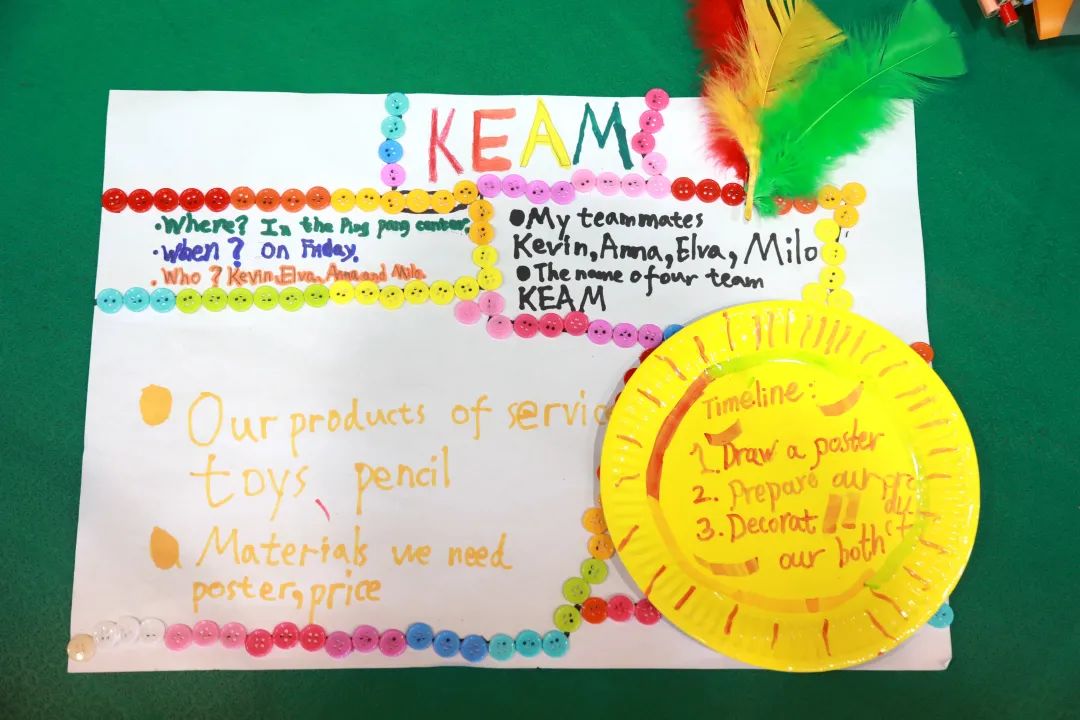 KEAM
·Where? In the Ping pang center.
·When? On Friday.
·Who? Kevin, Elva, Anna and Milo
●My teammates
Kevin, Anna, Elva, Milo
●The name of our team
KEAM
Our products of servic
toys, pencil
Materials we need
poster, price
Timeline:
1. Draw a poster
2. Prepare our product
3. Decorat
our both